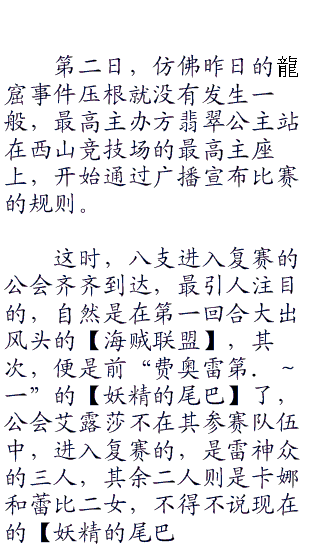 第二日，仿佛昨日的龍
窟事件压根就没有发生一
般，最高主办方翡翠公主站
在西山竞技场的最高主座
上，开始通过广播宣布比赛
的规则。
这时，八支进入复赛的
公会齐齐到达，最引人注目
的，自然是在第一回合大出
风头的【海贼联盟】，其
次，便是前“费奥雷第．~
一”的【妖精的尾巴】了，
公会艾露莎不在其参赛队伍
中，进入复赛的，是雷神众
的三人，其余二人则是卡娜
和蕾比二女，不得不说现在
的【妖精的尾巴